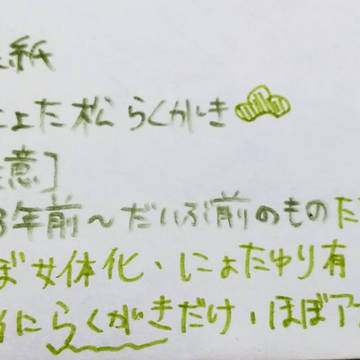 紙
にょた松 らくがき
注意]
3年前〜だいぶ前のものだ
ぼ女体化、にょたゆり有
にらくがきだけ、ほぼア